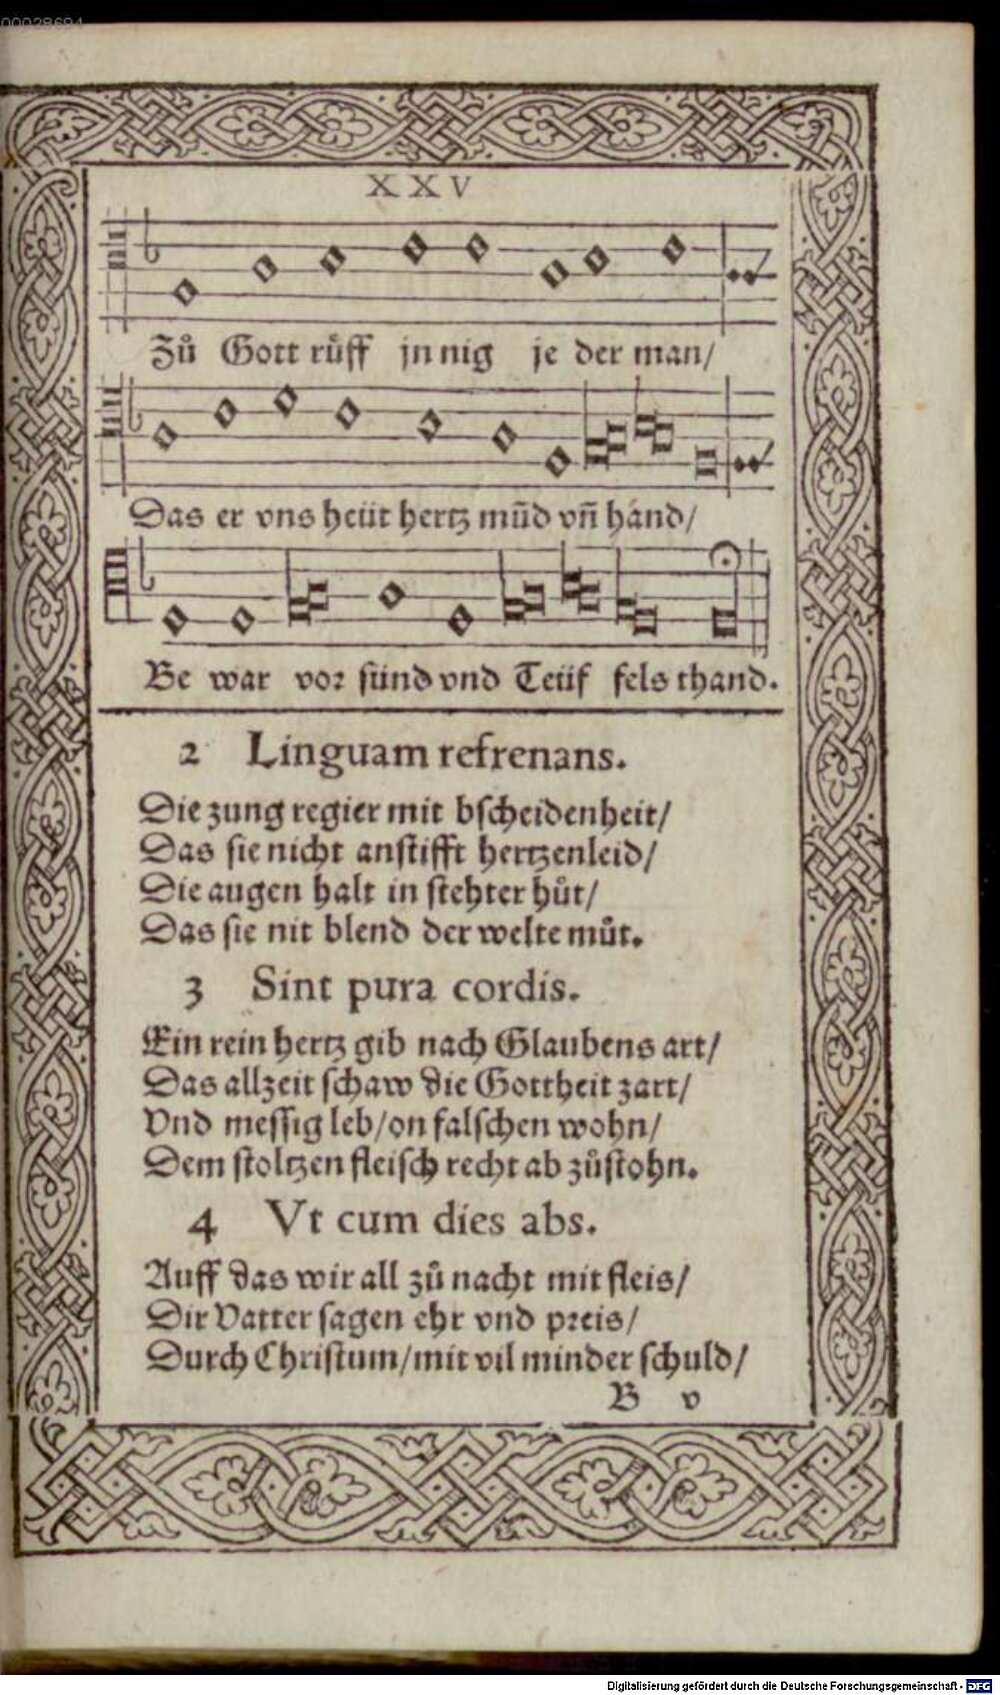 00028694
XXV
Zů Gott rüff jn nig je der man/
Das er vns heüt hertz mũd vñ hánd/
Be war vor sünd vnd Teüf fels thand.
2 Linguam refrenans.
Die zung regier mit bscheidenheit/
Das sie nicht anstifft hertzenleid/
Die augen halt in stehter hůt/
Das sie nit blend der welte můt.
3 Sint pura cordis.
Ein rein hertz gib nach Glaubens art/
Das allzeit schaw die Gottheit zart/
Vnd messig leb/on falschen wohn/
Dem stoltzen fleisch recht ab zůstohn.
4 Vt cum dies abs.
Auff das wir all zů nacht mit fleis/
Dir Vatter sagen ehr vnd preis/
Durch Christum/mit vil minder schuld/
B v
Digitalisierung gefördert durch die Deutsche Forschungsgemeinschaft - DFG